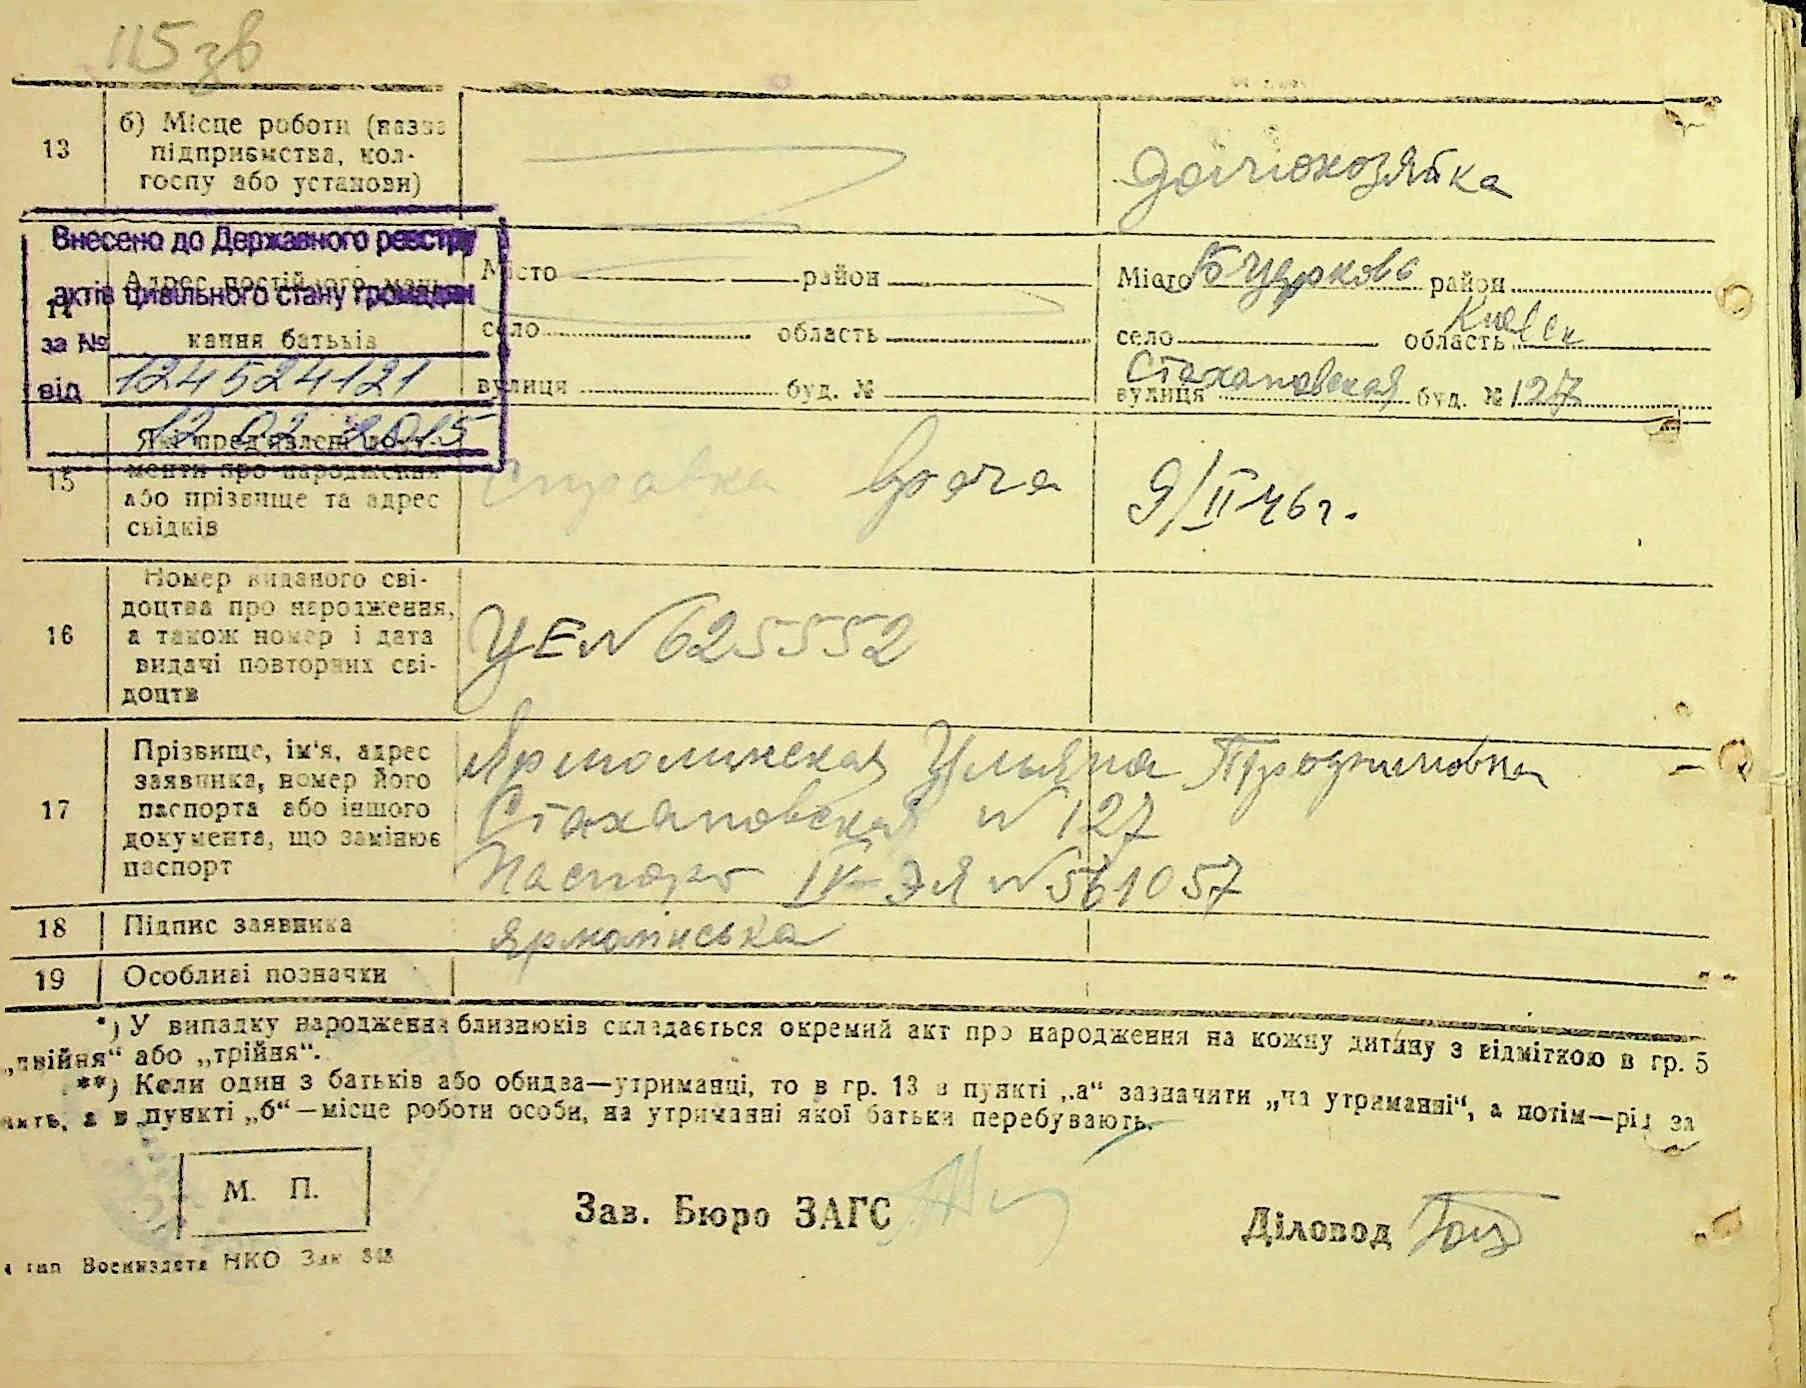 115 зв
13
б) Місце роботи (назва
підприємства, кол-
госпу або установи)
Домохозяйка
Внесено до Державного реєстру
актів цивільного стану громадян
за №
124524121
від
12 02 2015
Адрес постійного меш-
кання батьків
Місто район
село область
вулиця буд. №
Місто район
село область Киевск
вулиця Стахановская буд. № 127
15
Які пред'явлені доку-
менти про народження
або прізвище та адрес
свідків
Справка врача
9/II 46 г.
16
Номер виданого сві-
доцтва про народження,
а також номер і дата
видачі повторних сві-
доцтв
УЕ N 625552
17
Прізвище, ім'я, адрес
заявника, номер його
паспорта або іншого
документа, що замінює
паспорт
Ярмолинская Ульяна
Стахановская N 127
Паспорт IV-ЭЯ N 561057
18
Підпис заявника
Ярмолинська
19
Особливі позначки
*) У випадку народження близнюків складається окремий акт про народження на кожну дитину з відміткою в гр. 5
„двійня“ або „трійня“.
**) Коли один з батьків або обидва—утриманці, то в гр. 13 в пункті „а“ зазначити „на утриманні“, а потім—рід за
нять, а в пункті „б“—місце роботи особи, на утриманні якої батьки перебувають.
М. П.
Зав. Бюро ЗАГС
Діловод
тип Воениздата НКО Зак